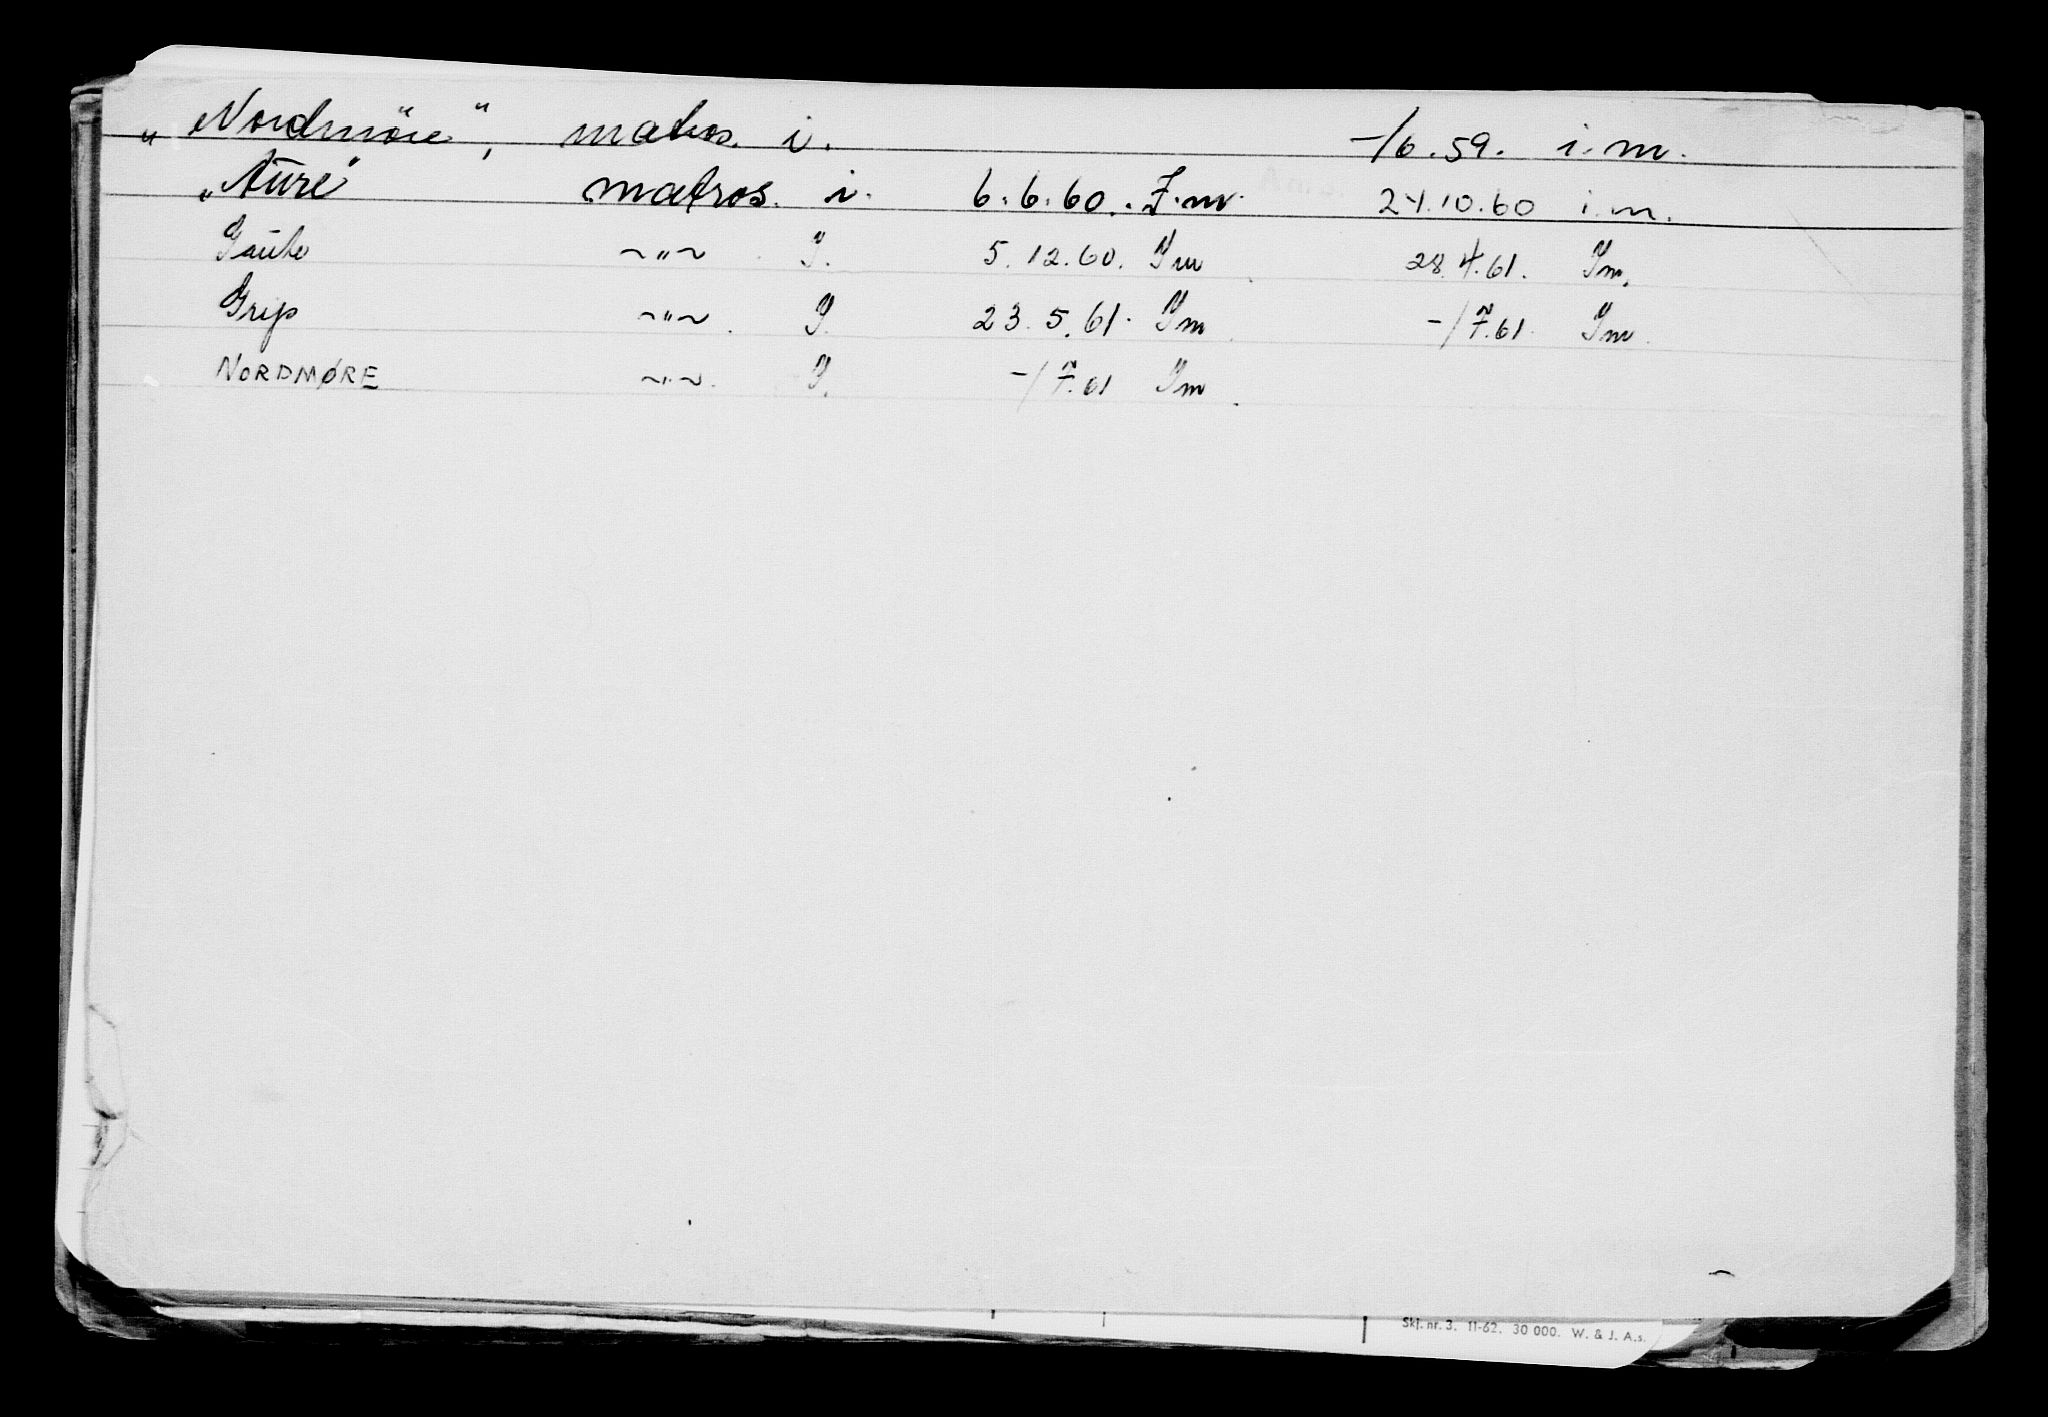 „Nordmöre", matros. i. -/6.59. i.m.
„Aure" matros. i. 6.6.60. I.m. 24.10.60 i.m.
Gaute ~"~ I. 5.12.60. Im 28.4.61. Im.
Grip ~"~ . I. 23.5.61. Im -/7.61. Im.
NORDMØRE ~"~ . I. -/7.61 Im.
Skj. nr. 3. 11-62. 30 000. W. & J. A.s.